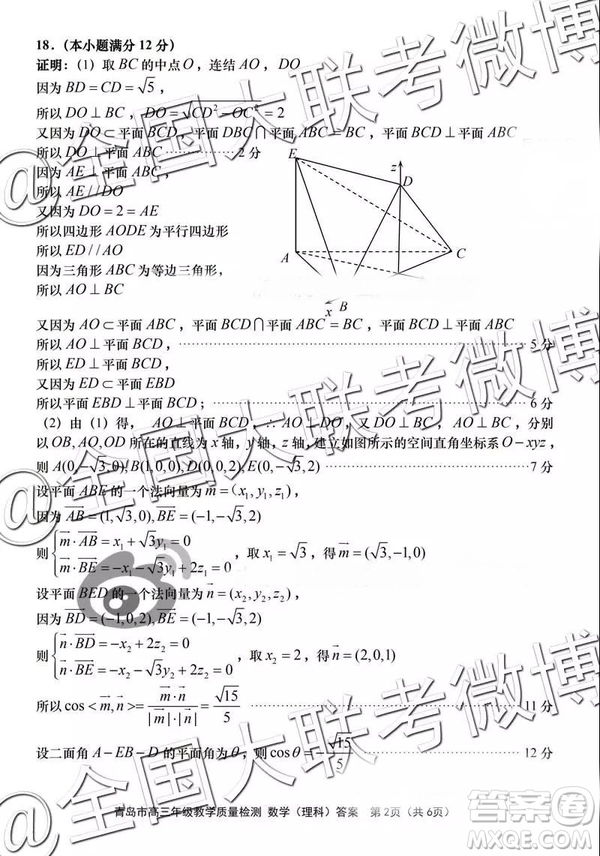 18.（本小题满分 12 分）
证明：（1）取 BC 的中点 O，连结 AO，DO
因为 BD = CD = √5，
所以 DO ⊥ BC，DO = √(CD² − OC²) = 2
又因为 DO ⊂ 平面 BCD，平面 DBC ∩ 平面 ABC = BC，
所以 DO ⊥ 平面 ABC ………… 2 分
因为 AE ⊥ 平面 ABC，
所以 AE // DO
又因为 DO = 2 = AE
所以四边形 AODE 为平行四边形
所以 ED // AO
因为三角形 ABC 为等边三角形，
所以 AO ⊥ BC
E
z
D
A
C
x
B
又因为 AO ⊂ 平面 ABC，平面 BCD ∩ 平面 ABC = BC，
所以 AO ⊥ 平面 BCD ………… 5 分
所以 ED ⊥ 平面 BCD，
又因为 ED ⊂ 平面 EBD
所以平面 EBD ⊥ 平面 BCD； ………… 6 分
（2）由（1）得， AO ⊥ 平面 BCD ∴ AO ⊥ DO，又 DO ⊥ BC，AO ⊥ BC，分别
以 OB, AO, OD 所在的直线为 x 轴，y 轴，z 轴，建立如图所示的空间直角坐标系 O − xyz，
则 A(0, −√3, 0), B(1,0,0), D(0,0,2), E(0, −√3, 2) ………… 7 分
设平面 ABE 的一个法向量为 m = (x₁, y₁, z₁)，
因为 AB = (1, √3, 0), BE = (−1, −√3, 2)
则 { m · AB = x₁ + √3y₁ = 0
m · BE = −x₁ − √3y₁ + 2z₁ = 0 ，取 x₁ = √3，得 m = (√3, −1, 0)
设平面 BED 的一个法向量为 n = (x₂, y₂, z₂)，
因为 BD = (−1, 0, 2), BE = (−1, −√3, 2)
则 { n · BD = −x₂ + 2z₂ = 0
n · BE = −x₂ − √3y₂ + 2z₂ = 0 ，取 x₂ = 2，得 n = (2, 0, 1)
所以 cos < m, n >= m · n / |m| · |n| = √15 / 5 ………… 11 分
设二面角 A − EB − D 的平面角为 θ，则 cos θ = −√15 / 5 ………… 12 分
青岛市高三年级教学质量检测 数学（理科）答案 第 2页（共 6页）
@全国大联考微博
@全国大联考微博
@全国大联考微博
答案圈
MXQE.COM